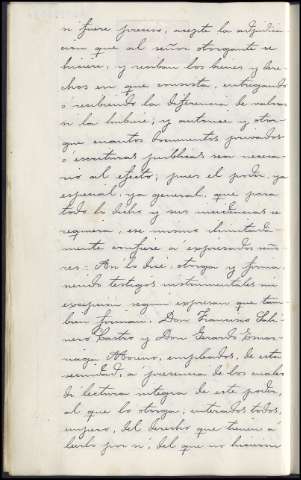 si fuere preciso, acepte la adjudica-
cion que al señor otorgante se
hiciere, y reciban los bienes y dere-
chos en que consista, entregando
ó recibiendo la diferencia de valor
si la hubiere; y autorice y otor-
gue cuantos documentos privados
ó escrituras públicas sean necesa-
rios al efecto; pues el poder, ya
especial, ya general, que para
todo lo dicho y sus incidencias se
requiera, ese mismo ilimitada-
mente confiere á expresados seño-
res. Así lo dice, otorga y firma
siendo testigos instrumentales sin
excepcion segun expresan que tam-
bien firman: Don Francisco Sali-
nero Castro y Don Gerardo
Moreno, empleados, de esta
vecindad, á presencia de los cuales
dí lectura integra de este poder,
al que lo otorga, enterados todos,
empero, del derecho que tienen á
leerlo por sí, del que no hicieron